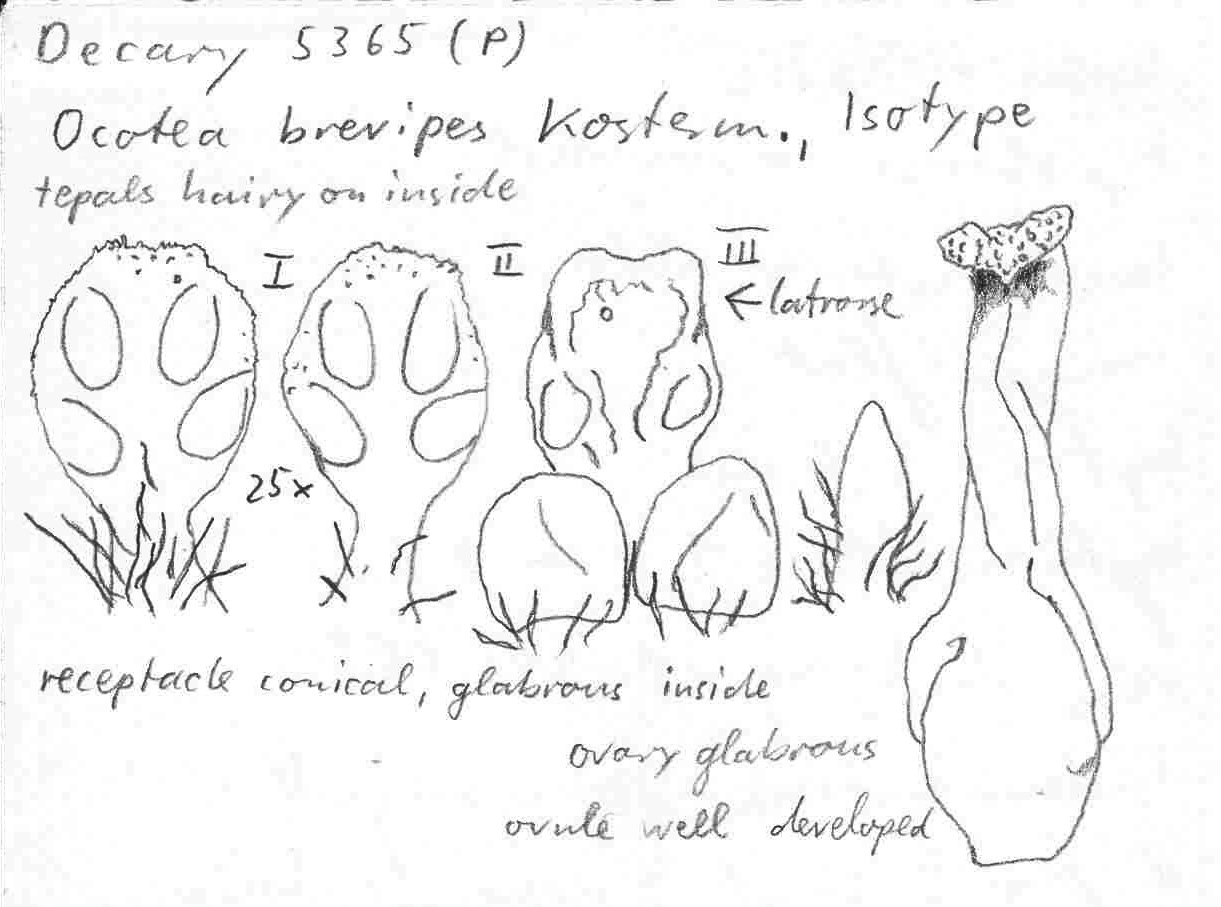 Decary 5365 (P)
Ocotea brevipes Kosterm., Isotype
tepals hairy on inside
I
II
III
← latrorse
25x
receptacle conical, glabrous inside
ovary glabrous
ovule well developed